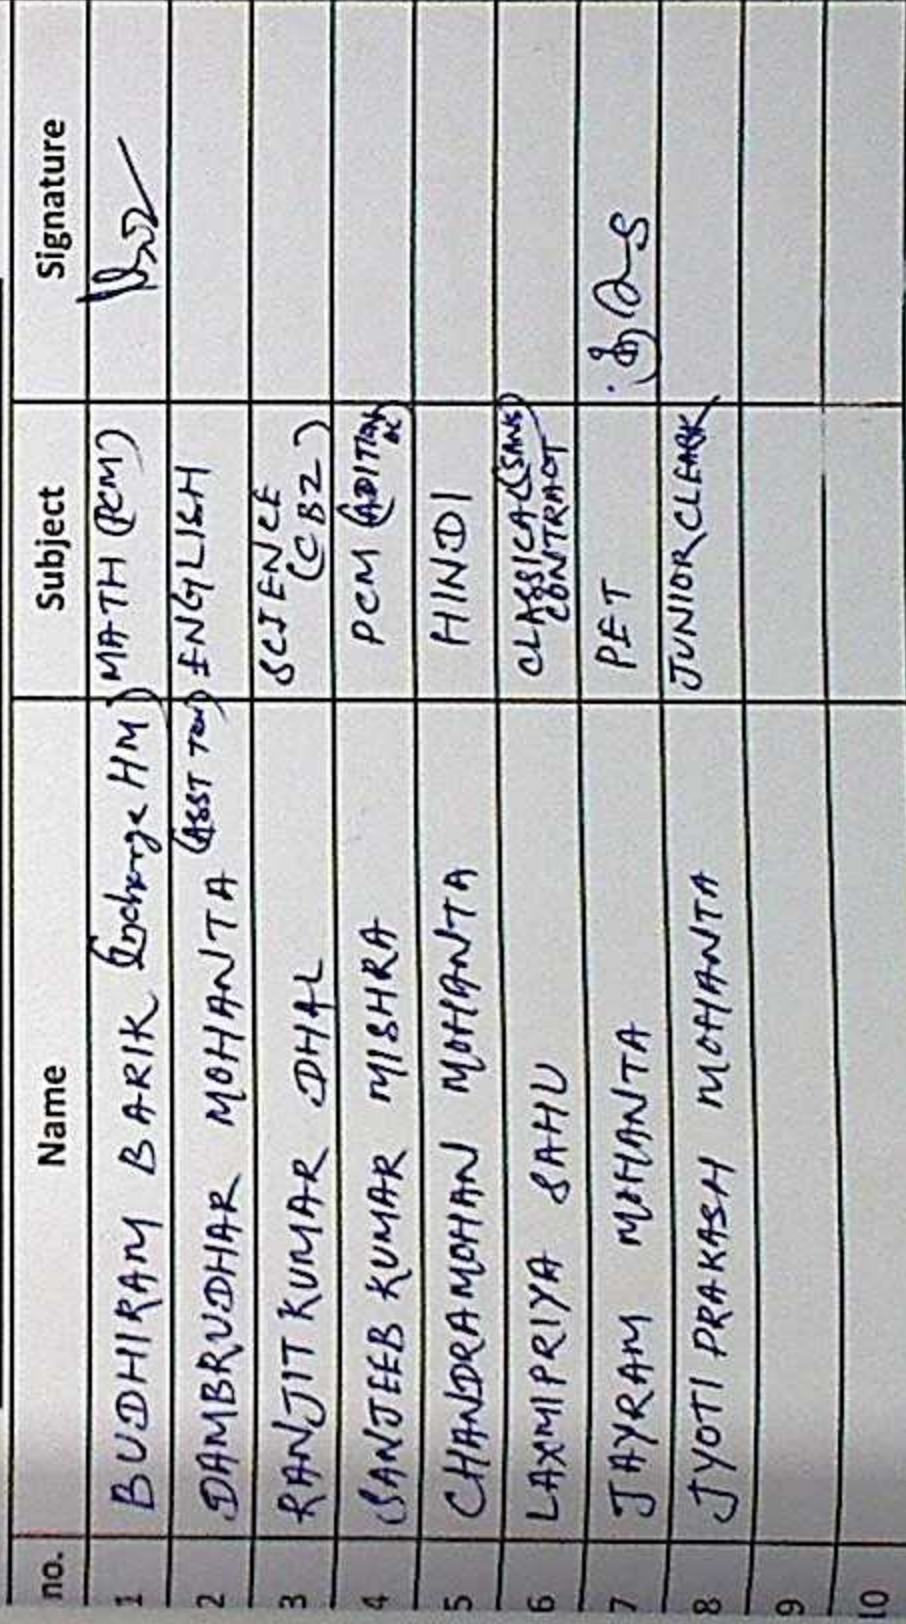 no. Name Subject Signature
1 BUDHIRAM BARIK (Incharge HM) MATH (PCM)
2 DAMBRUDHAR MOHANTA (ASST Tea) ENGLISH
3 RANJIT KUMAR DHAL SCIENCE
(CBZ)
4 SANJEEB KUMAR MISHRA PCM
5 CHANDRAMOHAN MOHANTA HINDI
6 LAXMIPRIYA SAHU CLASSICAL (SANS)
CONTRACT
7 JAYRAM MOHANTA PET
8 JYOTI PRAKASH MOHANTA JUNIOR CLEARK
9
10